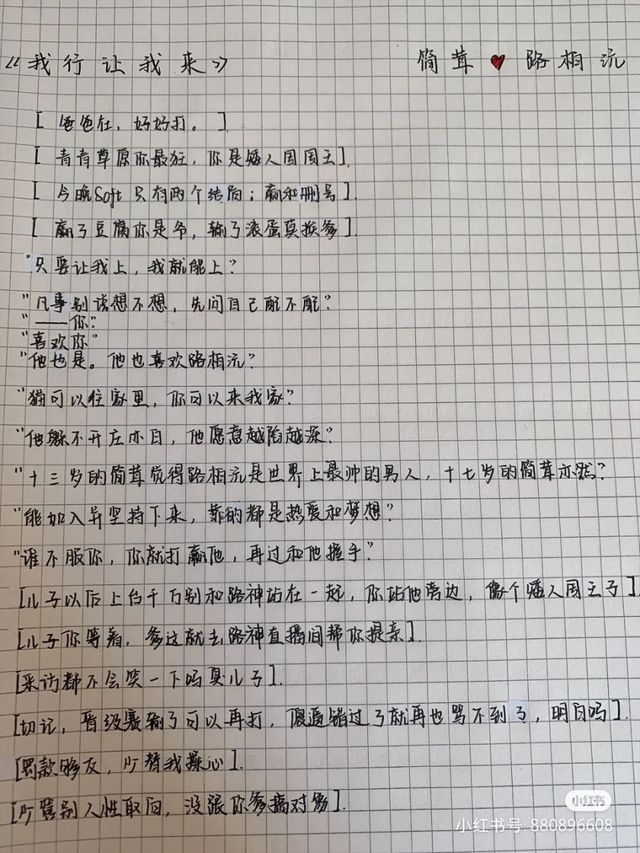 《我行让我来》 简茸♥路相沅
[爸爸在，好好打。]
[青青草原你最狂，你是矮人国国王]
[今晚Soft只有两个结局；赢和删号]
[赢了豆腐你是爷，输了滚蛋莫挨爹]
"只要让我上，我就能上"
"凡事别谈想不想，先问自己配不配"
"——你"
"喜欢你"
"他也是。他也喜欢路相沅"
"猫可以住家里，你可以来我家"
"他躲不开庄亦白，他愿意越陷越深"
"十三岁的简茸觉得路相沅是世界上最帅的男人，十七岁的简茸亦然"
"能加入并坚持下来，靠的都是热爱和梦想"
"谁不服你，你就打赢他，再过和他握手"
[儿子以后上台千万别和路神站在一起，你站他旁边，像个矮人国王子]
[儿子你等着，爹这就去路神直播间帮你提亲]
[采访都不会笑一下吗臭儿子]
[切记，晋级赛输了可以再打，傻逼错过了就再也骂不到了，明白吗]
[罚款够友，少替我操心]
[少管别人性取向，没张你爹搞对象]
小红书
小红书号: 880896608